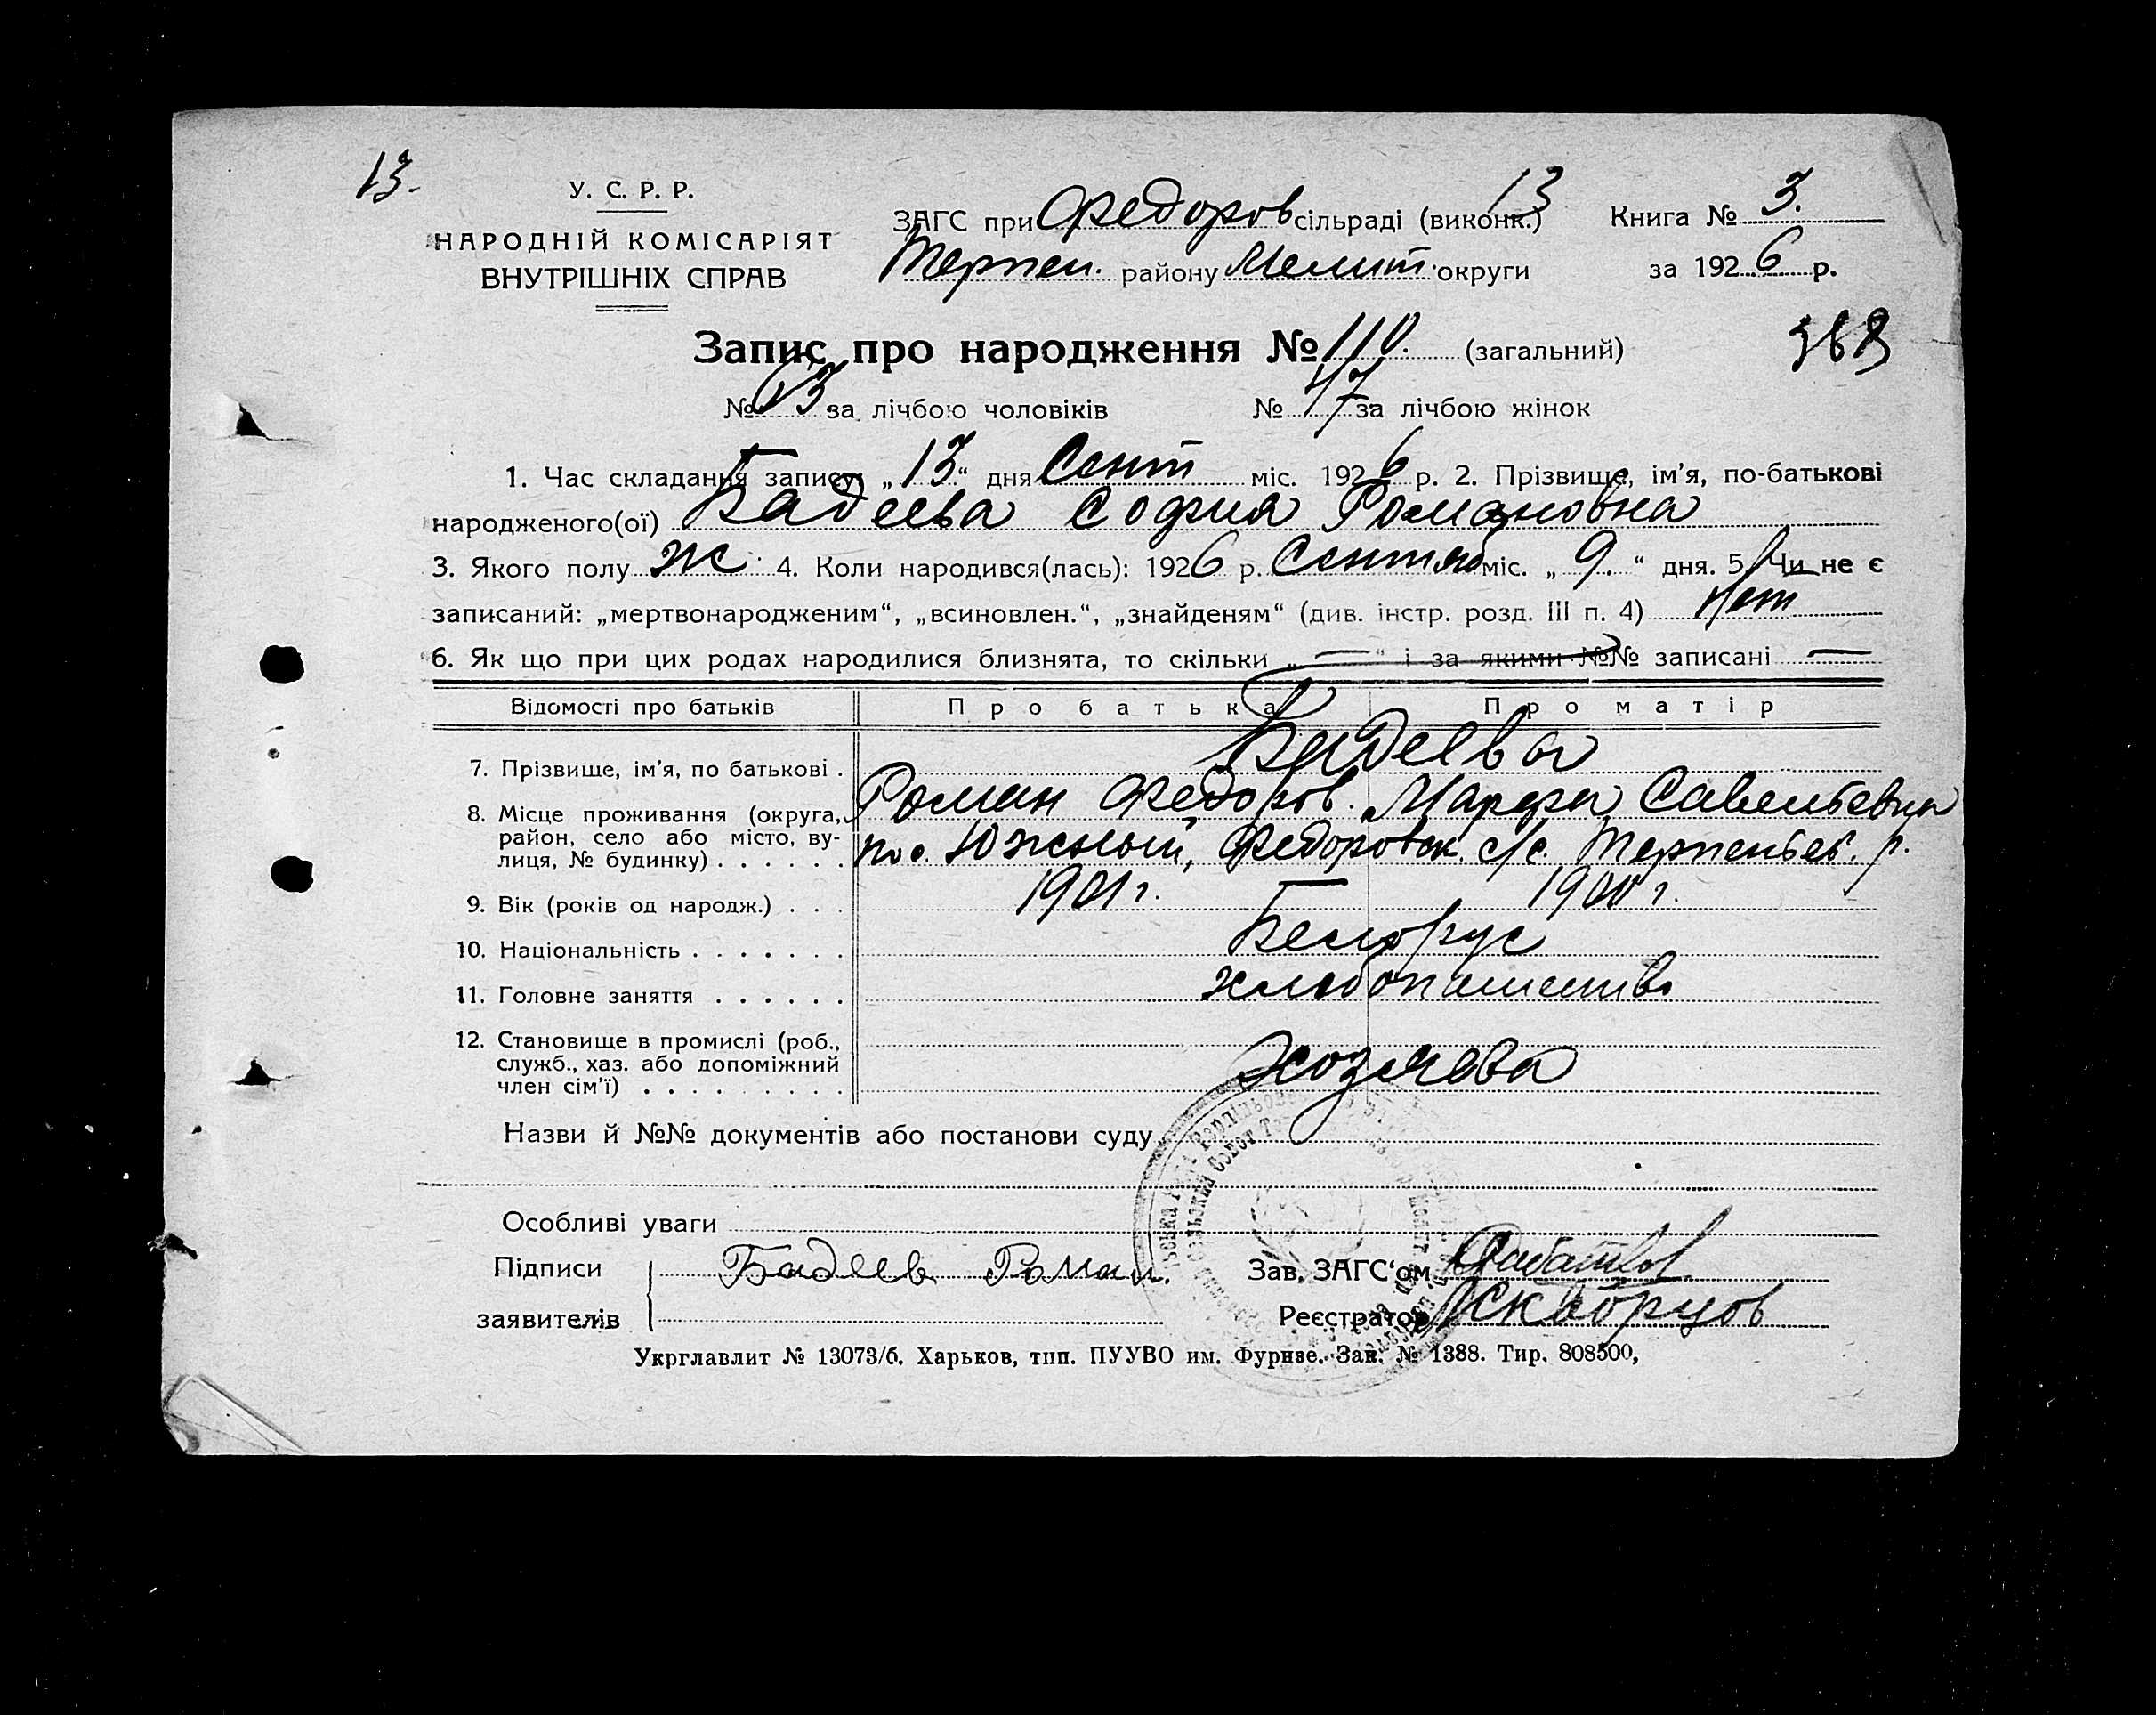 13.
У. С. Р. Р.
НАРОДНІЙ КОМІСАРІЯТ
ВНУТРІШНІХ СПРАВ
13
ЗАГС при Федоров сільраді (виконк.) Книга № 3.
Терпен. району Мелит. округи за 1926 р.
Запис про народження № 110. (загальний)
368
№ 63 за лічбою чоловіків № 47 за лічбою жінок
1. Час складання запису: „13“ дня Сент міс. 1926 р. 2. Прізвище, ім’я, по-батькові
народженого(ої) Бадеева София Романовна
3. Якого полу ж 4. Коли народився(лась): 1926 р. Сентяб міс. „9.“ дня. 5. Чи не є
записаний: „мертвонародженим“, „всиновлен.“, „знайденям“ (див. інстр. розд. III п. 4) Нет
6. Як що при цих родах народилися близнята, то скільки „—“ і за якими №№ записані —
Відомості про батьків Про батька Про матір
7. Прізвище, ім’я, по батькові . Бадеевы
Роман Федоров. Марфа Савельевна
8. Місце проживання (округа, район, село або місто, вулиця, № будинку) . . . . . . пос. Южный, Федоровск. с/с. Терпеньев. р.
9. Вік (років од народж.) . . . 1901 г. 1900 г.
10. Національність . . . . . . . Белорус
11. Головне заняття . . . . . . хлебопашеств.
12. Становище в промислі (роб.,
служб., хаз. або допоміжний
член сім’ї) . . . . . . . . . хозяева
Назви й №№ документів або постанови суду
Особливі уваги
Підписи Бадеев Роман.
заявителів
Зав. ЗАГС‘ом
Реєстратор Скворцов
Укрглавлит № 13073/б. Харьков, тип. ПУУВО им. Фурнзе. Зак. № 1388. Тир. 808500,